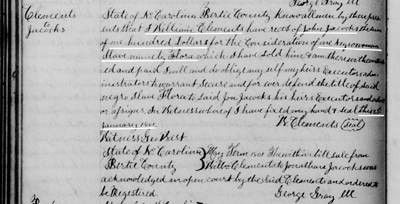 George Gray Clk
Clements
to
Jacocks
State of No Carolina Bertie County Know all men by these pre
sents that I William Clements have recd of John Jacocks the sum
of one hundred Dollars for the Consideration of one negro woman
Slave named Flora which I have sold him & am therein contented
and paid I will and do oblige my self my heirs Executors adm
inistrators to warrant secure and forever defend the title of said
negro Slave Flora to said Jon Jacocks his heirs Executors
or assigns In Witness whereof I have fixed my hand & seal this
January 1801
W Clements seal
Witness
State of No Carolina
Bertie County
May Term 1801 The within bill sale from
Clements to Jonathan Jacocks was
acknowledged in open court by the said Clements and ordered to
be Registered
George Gray Clk